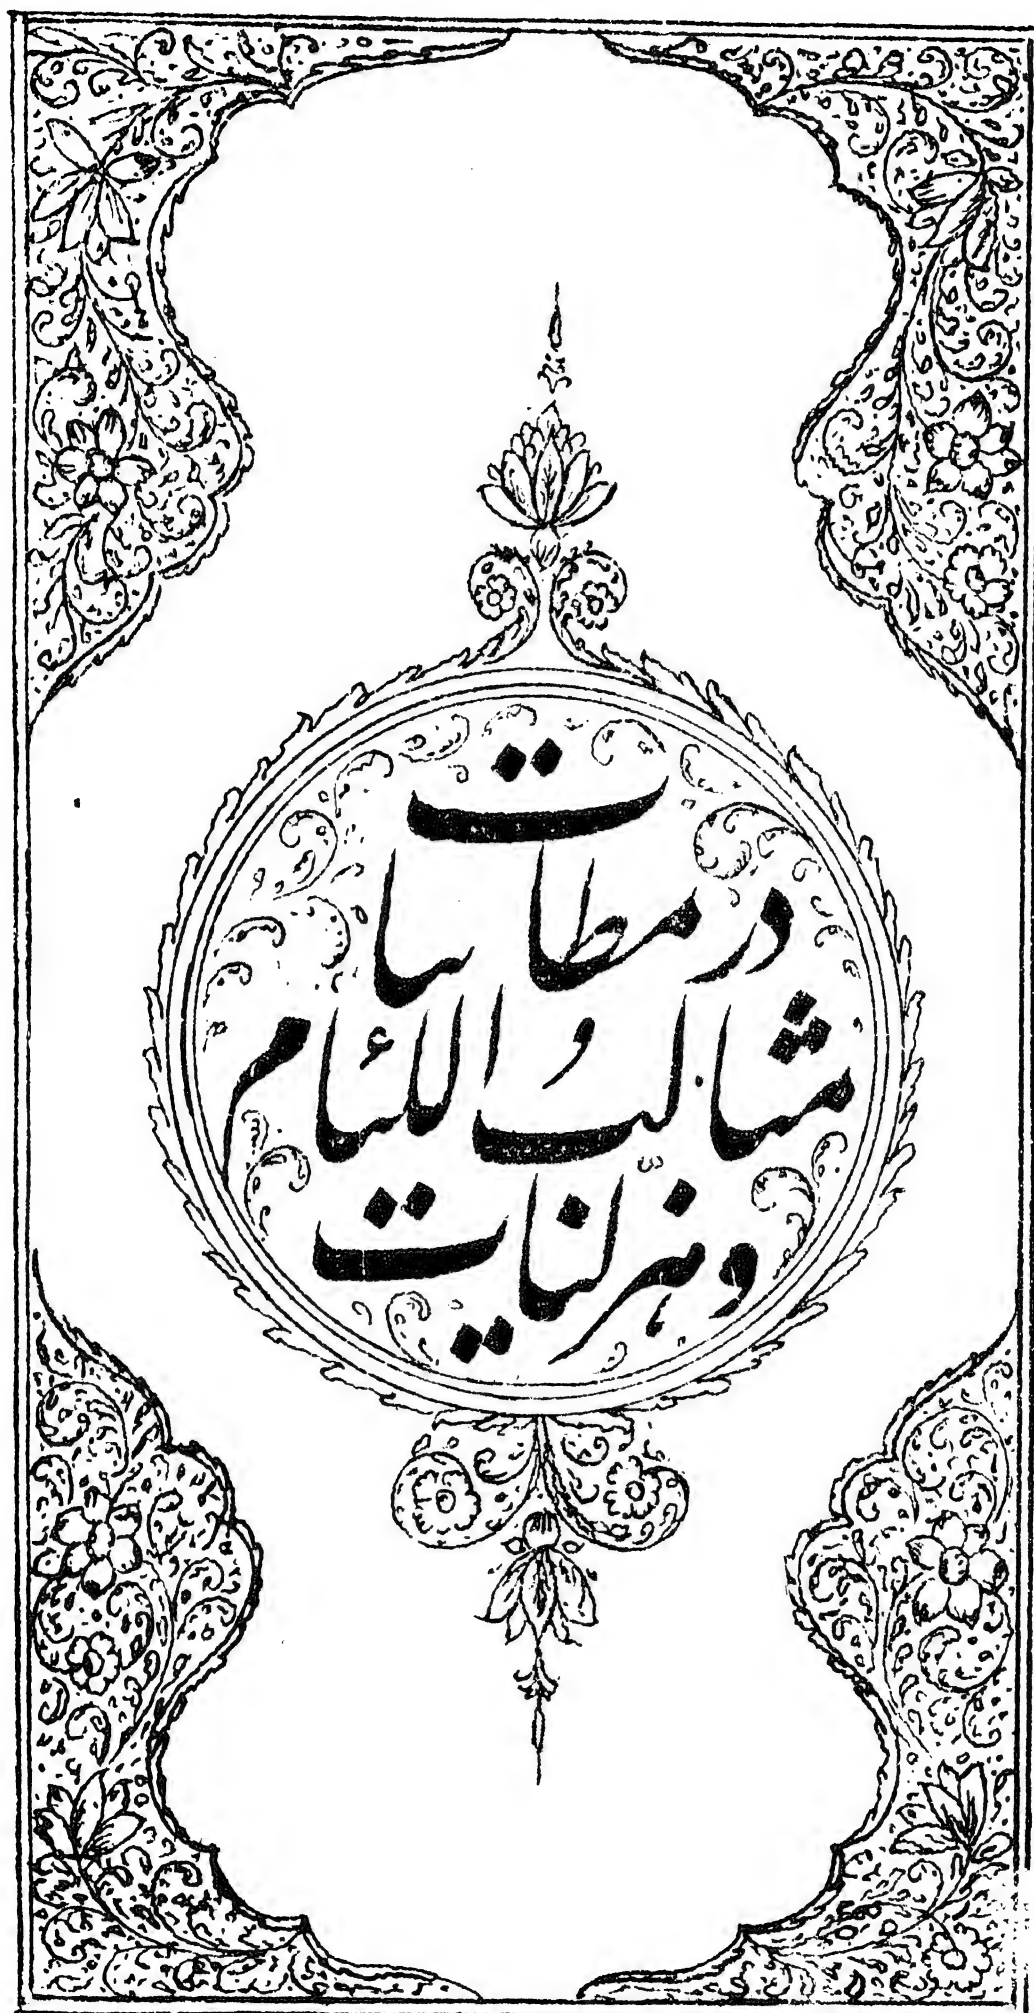 در مطایبات
و مثالب اللئام
و هزلیات